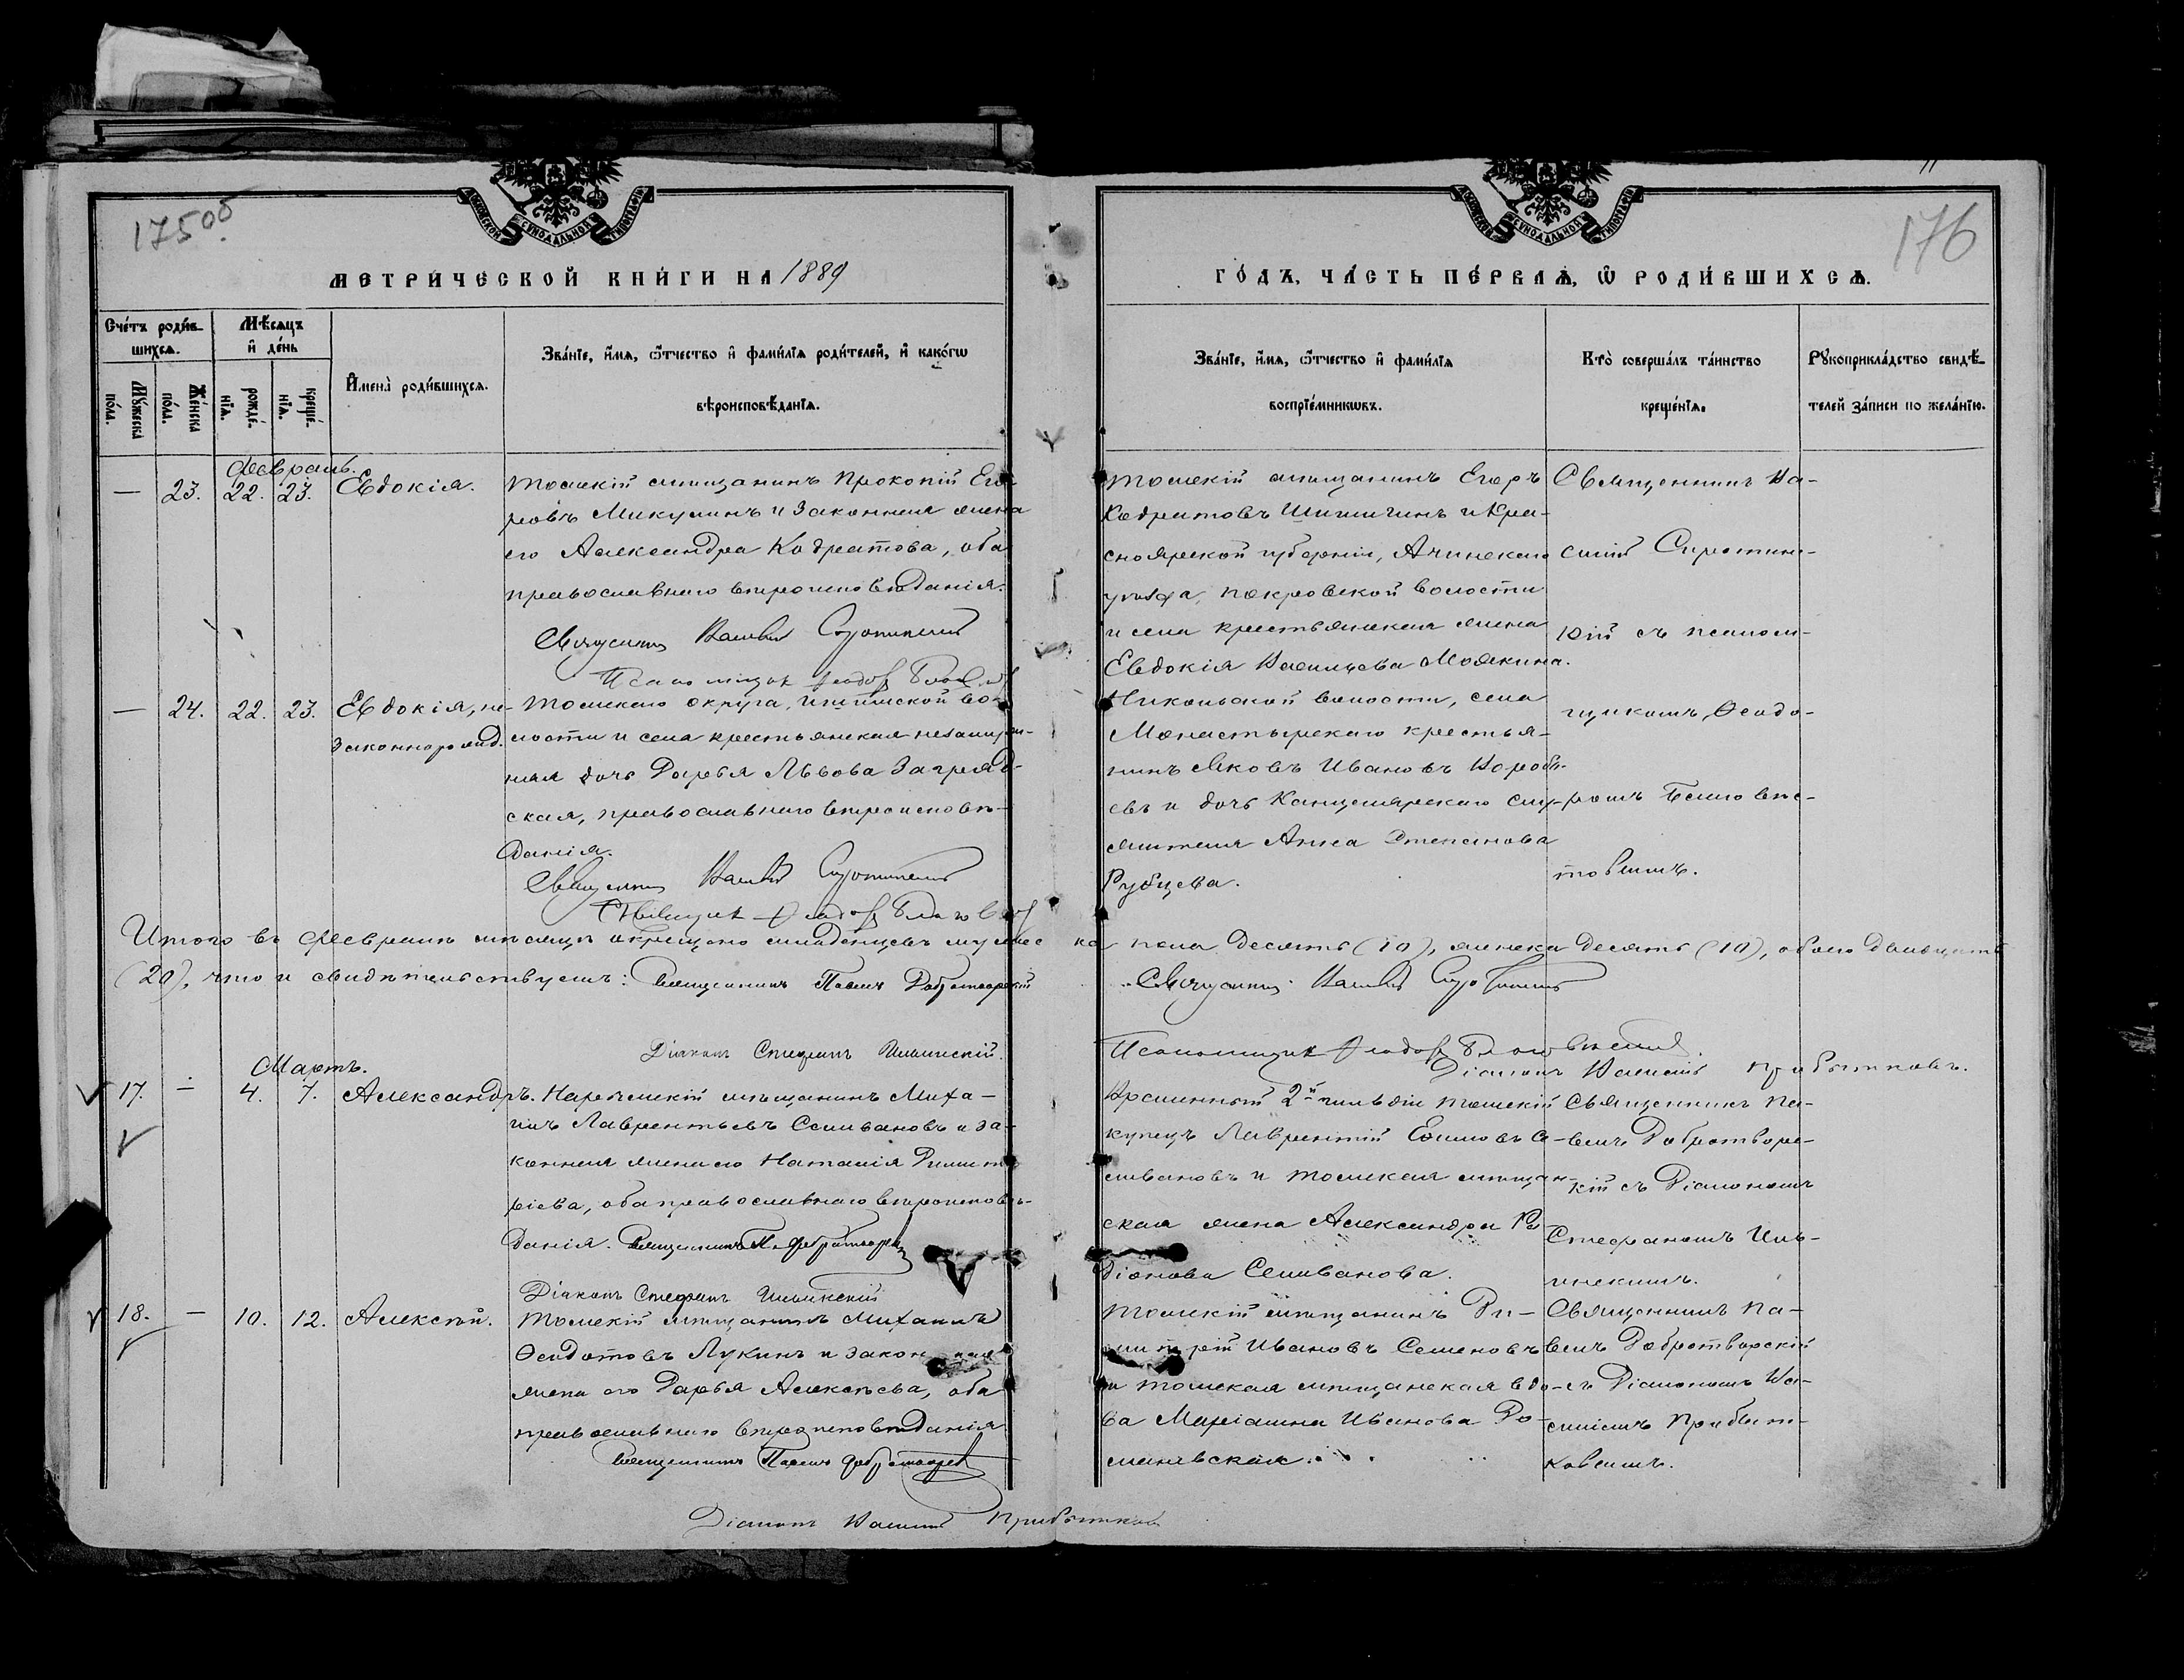 175об
176
МЕТРИЧЕСКОЙ КНИГИ НА 1889
ГОДЪ, ЧАСТЬ ПЕРВАѦ, Ѡ РОДИВШИХСѦ.
Счетъ родив-
шихсѧ.
Мѣсѧцъ
и день
Мужеска
пола.
Женска
пола.
рожде-
нїѧ.
креще-
нїѧ.
Имена родившихсѧ.
Званїе, имѧ, ѿчество и фамилїѧ родителей, и какогѡ
вѣроисповѣданїѧ.
Званїе, имѧ, ѿчество и фамилїѧ
воспрїемникѡвъ.
Кто совершалъ таинство
крещенїѧ.
Рукоприкладство свидѣ-
телей записи по желанїю.
Февраль.
— 23. 22. 23. Евдокія.
Томскій мѣщанинъ Прокопій Его-
ровъ Микулинъ и законная жена
его Александра Кодратова, оба
православнаго вѣроисповѣданія.
Священникъ Василій Сиротинскій
Псаломщикъ Ѳеодоръ
Томскій мѣщанинъ Егоръ
Кодратовъ Шишигинъ и Кра-
сноярской губерніи, Ачинскаго
уѣзда, Покровской волости
и села крестьянская жена
Евдокія Васильева Можкина.
Священникъ Ва-
силій Сиротин-
скій съ псалом-
щикомъ Ѳеодо-
ромъ Благовѣс-
товымъ.
— 24. 22. 23. Евдокія, не-
законнорожд.
Томскаго округа, Ишимской во-
лости и села крестьянская незамуж-
няя дочь Дарья Львова Загряд-
ская, православнаго вѣроисповѣ-
данія.
Священникъ Василій Сиротинскій
Псаломщикъ Ѳеодоръ
Никольской волости, села
Монастырскаго крестья-
нинъ Яковъ Ивановъ Коробъ-
евъ и дочь Канцелярскаго слу-
жителя Анна Степанова
Рубцева.
Итого въ Февралѣ мѣсяцѣ окрещено младенцевъ мужеска пола десять (10), женска десять (10), обоего двадцать
(20), что и свидѣтельствуемъ: Священникъ Павелъ Добротворскій
Священникъ Василій Сиротинскій
Діаконъ Стефанъ Ильинскій.
Псаломщикъ Ѳеодоръ
Діаконъ Василій Прибытковъ.
Мартъ.
17. — 4. 7. Александръ.
Нарымскій мѣщанинъ Миха-
илъ Лаврентьевъ Селивановъ и за-
конная жена его Наталія Димит-
ріева, оба православнаго вѣроисповѣ-
данія. Священникъ П. Добротворскій
Діаконъ Стефанъ Ильинскій
Временный 2й гильдіи томскій
купецъ Лаврентій Ефимовъ Се-
ливановъ и томская мѣщан-
ская жена Александра Ро-
діонова Селиванова.
Священникъ Па-
велъ Добротворс-
кій съ Діакономъ
Стефаномъ Иль-
инскимъ.
18. — 10. 12. Алексѣй.
Томскій мѣщанинъ Михаилъ
Ѳедотовъ Лукинъ и законная
жена его Дарья Алексѣева, оба
православнаго вѣроисповѣданія
Священникъ Павелъ Добротворскій
Діаконъ Василій Прибытковъ
Томскій мѣщанинъ Ди-
митрій Ивановъ Семеновъ
и томская мѣщанская вдо-
ва Маріамна Иванова Ро-
мановская.
Священникъ Па-
велъ Добротворскій
съ Діакономъ Ва-
силіемъ Прибыт-
ковымъ.